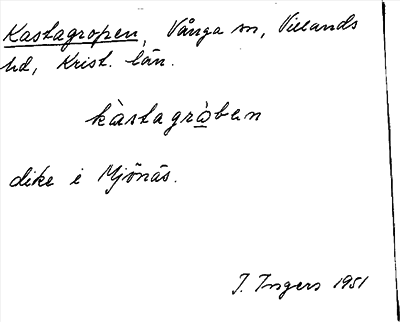 Kastagropen, Vånga sn, Villands
hd, Krist. län.
kàstagrò̲ban
dike i Mjönäs.
I. Ingers 1951